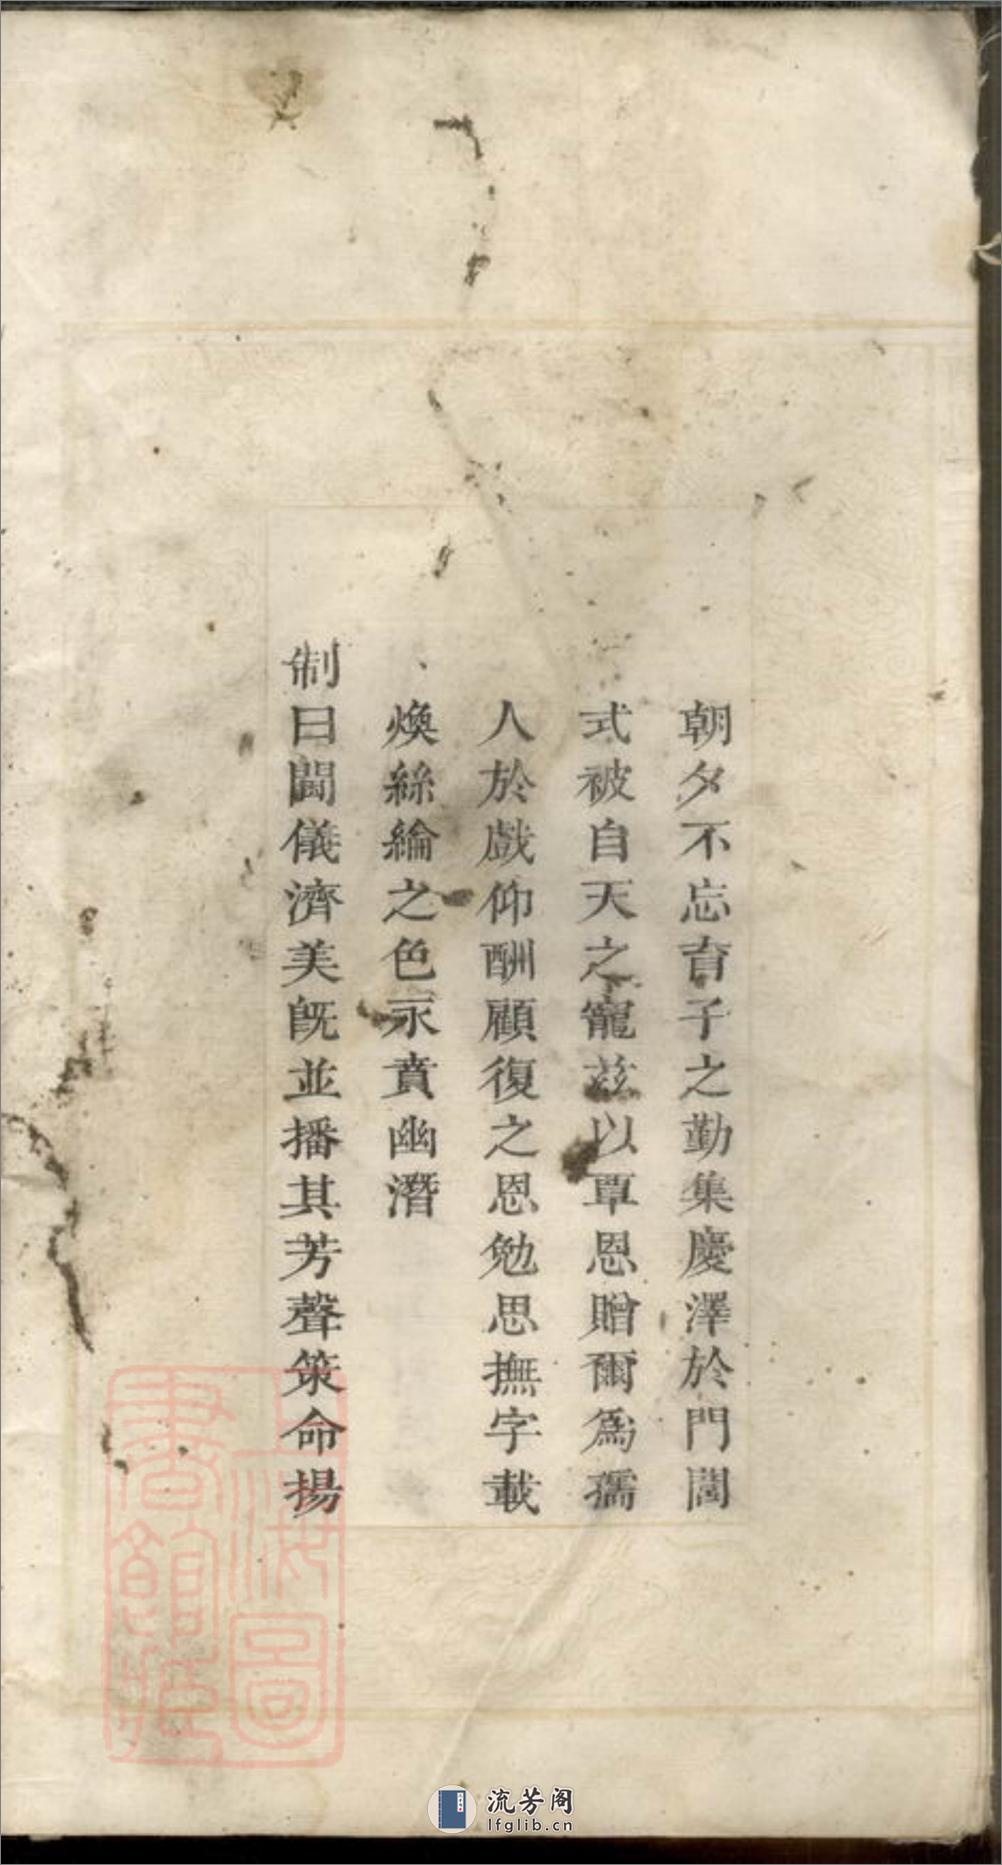 朝夕不忘育子之勤集慶澤於門閭
式被自天之寵茲以覃恩贈爾為孺
人於戲仰酬顧復之恩勉思撫字載
煥絲綸之色永賁幽潛
制曰閫儀濟美旣並播其芳聲策命揚
上海圖書館藏
流芳阁
lfglib.cn